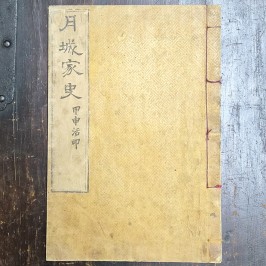 月城家史
甲申活印